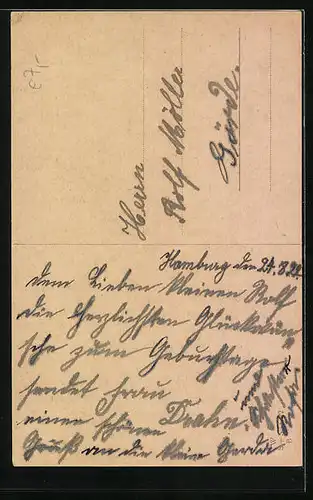 € 7,-
Herrn
Rolf Möller
Hamburg den 24.8.21
dem lieben kleinen Rolf
die herzlichsten Glückwün=
sche zum Geburtstage
sendet Frau
einen schönen
Gruß an die kleine Gerda